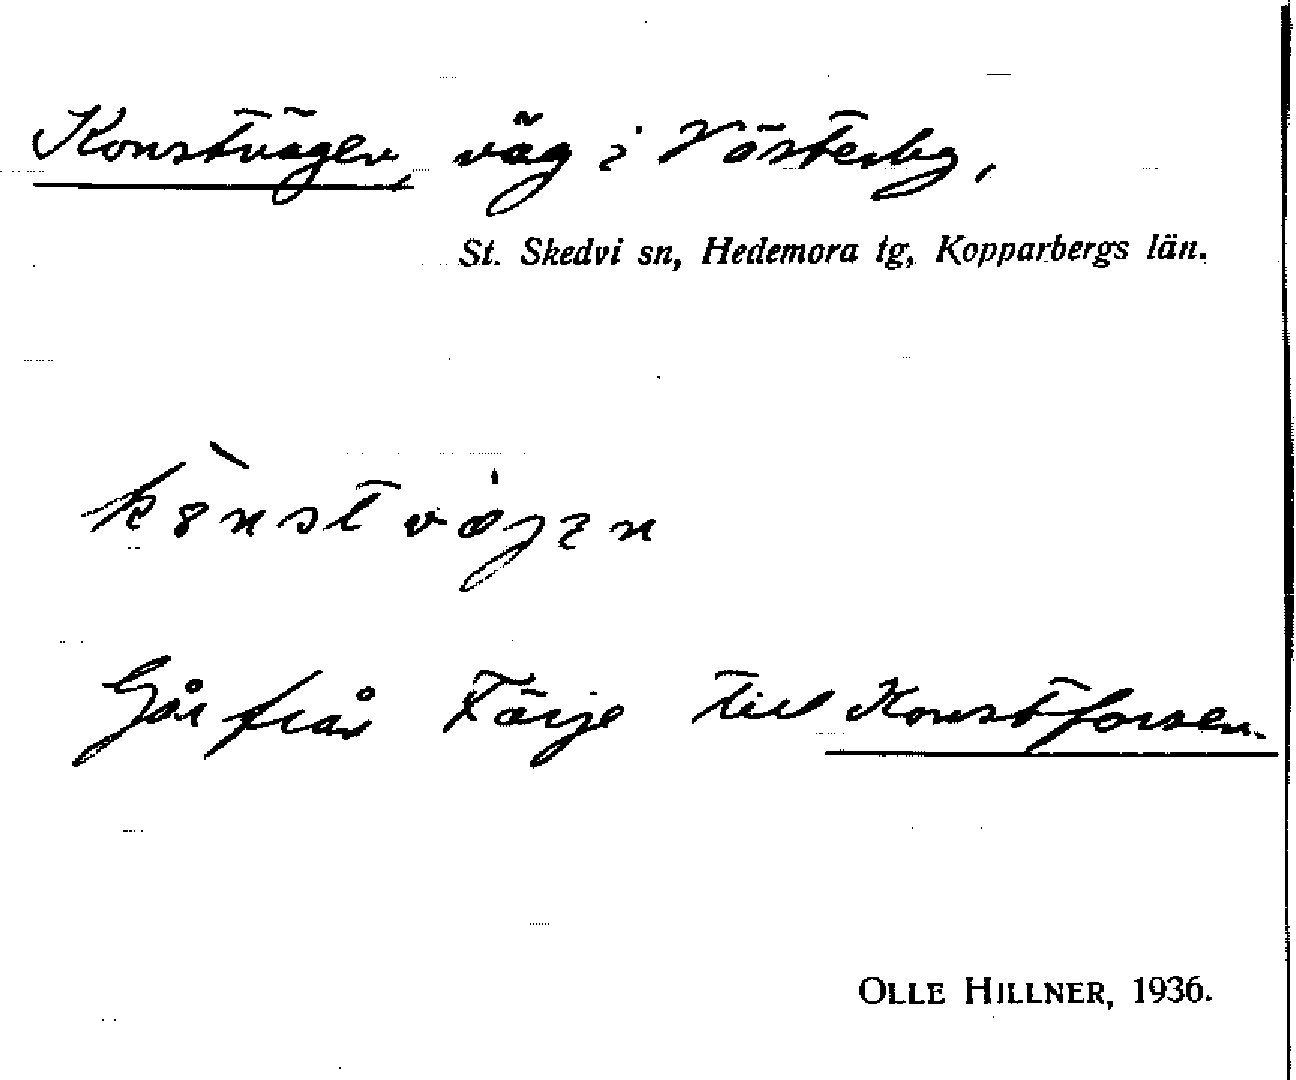 Konstvägen, väg i Västerby,
St. Skedvi sn, Hedemora tg, Kopparbergs län.
Går från Färje till Konstforsen.
OLLE HILLNER, 1936.